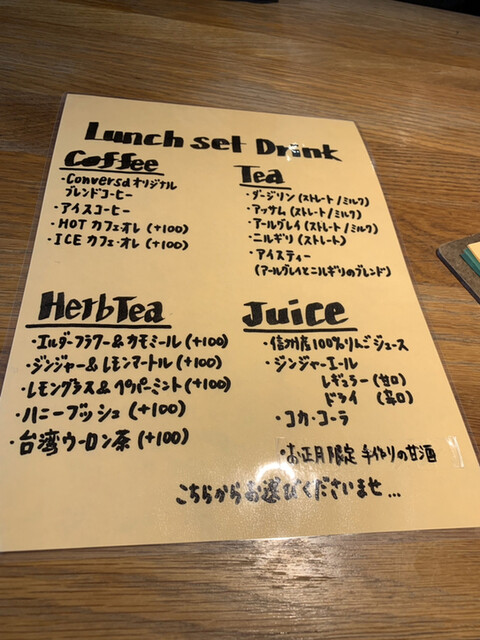 Lunch set Drink
Coffee
・Conversa オリジナル
ブレンドコーヒー
・アイスコーヒー
・HOT カフェ・オレ (+100)
・ICE カフェ・オレ (+100)
Tea
・ダージリン (ストレート/ミルク)
・アッサム (ストレート/ミルク)
・アールグレイ (ストレート/ミルク)
・ニルギリ (ストレート)
・アイスティー
(アールグレイとニルギリのブレンド)
HerbTea
・エルダーフラワー&カモミール (+100)
・ジンジャー&レモンマートル (+100)
・レモングラス&ペパーミント (+100)
・ハニーブッシュ (+100)
・台湾ウーロン茶 (+100)
Juice
・信州産100%りんごジュース
・ジンジャーエール
レギュラー (甘口)
ドライ (辛口)
・コカ・コーラ
・お正月限定 手作りの甘酒
こちらからお選びくださいませ...